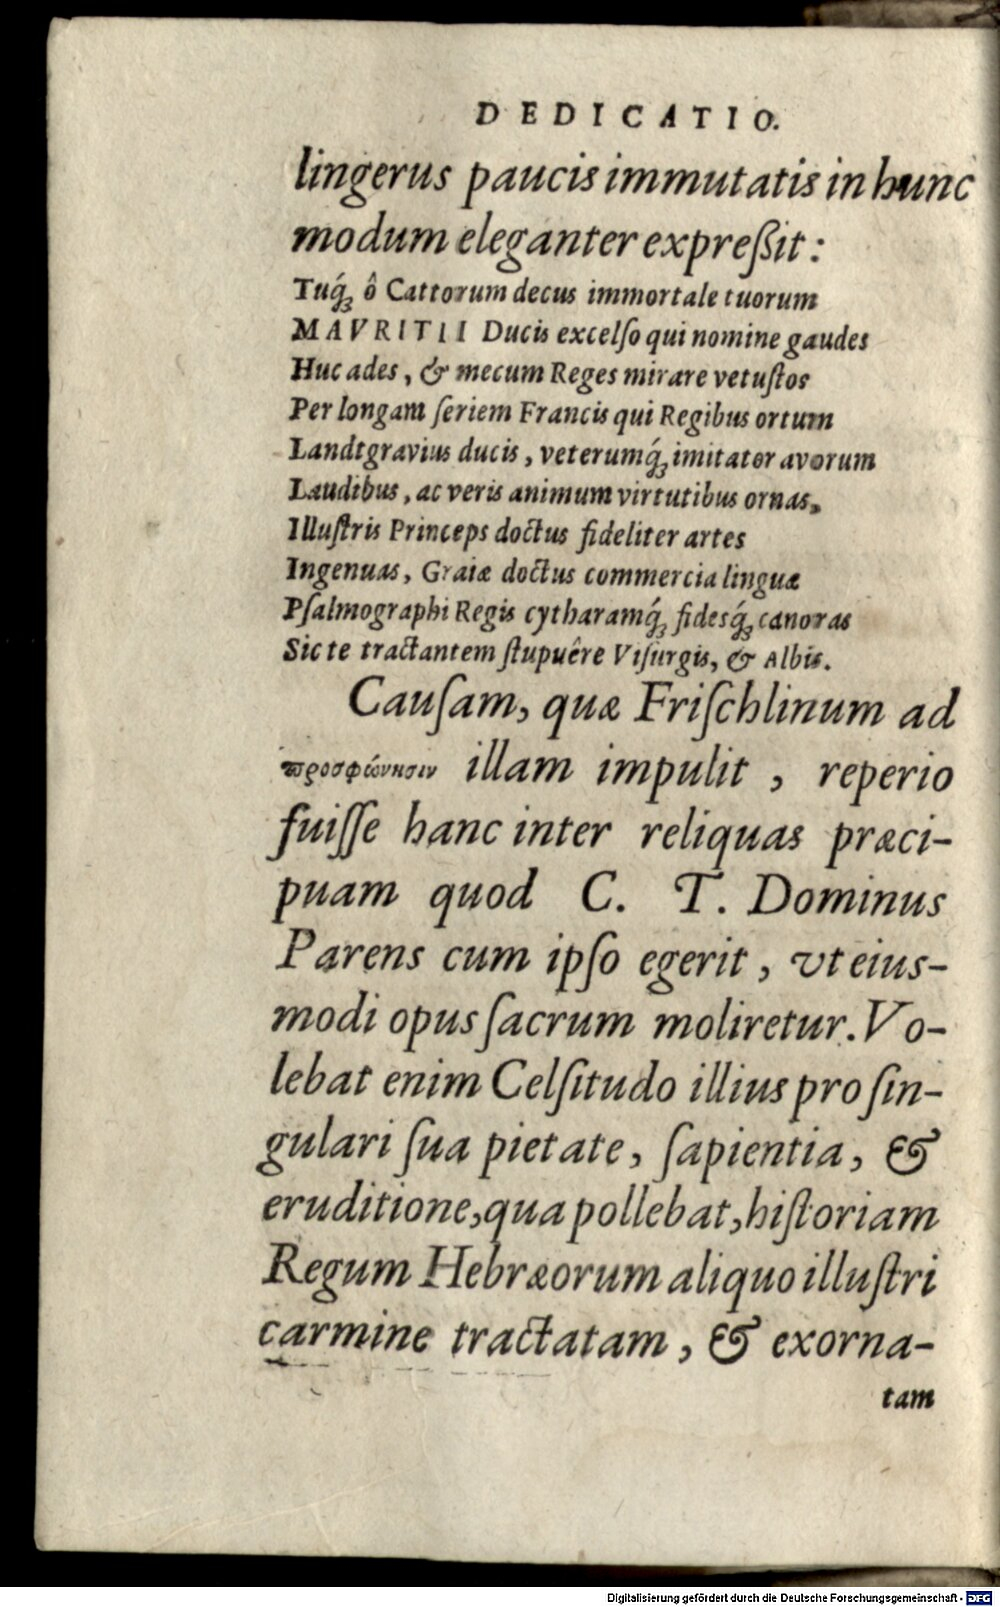 DEDICATIO.
lingerus paucis immutatis in hunc
modum eleganter expreßit:
Tuq́ꝫ ô Cattorum decus immortale tuorum
MAVRITII Ducis excelſo qui nomine gaudes
Huc ades, & mecum Reges mirare vetuſtos
Per longam ſeriem Francis qui Regibus ortum
Landtgravius ducis, veterumq́ꝫ imitator avorum
Laudibus, ac veris animum virtutibus ornas,
Illuſtris Princeps doctus fideliter artes
Ingenuas, Graiæ doctus commercia linguæ
Pſalmographi Regis cytharamq́ꝫ fidesq́ꝫ canoras
Sic te tractantem ſtupuêre Viſurgis, & Albis.
Cauſam, quæ Friſchlinum ad
προσφώνησιν illam impulit, reperio
fuiſſe hanc inter reliquas præci-
puam quod C. T. Dominus
Parens cum ipſo egerit, vt eius-
modi opus ſacrum moliretur. Vo-
lebat enim Celſitudo illius pro ſin-
gulari ſua pietate, ſapientia, &
eruditione, qua pollebat, hiſtoriam
Regum Hebræorum aliquo illuſtri
carmine tractatam, & exorna-
tam
Digitalisierung gefördert durch die Deutsche Forschungsgemeinschaft - DFG